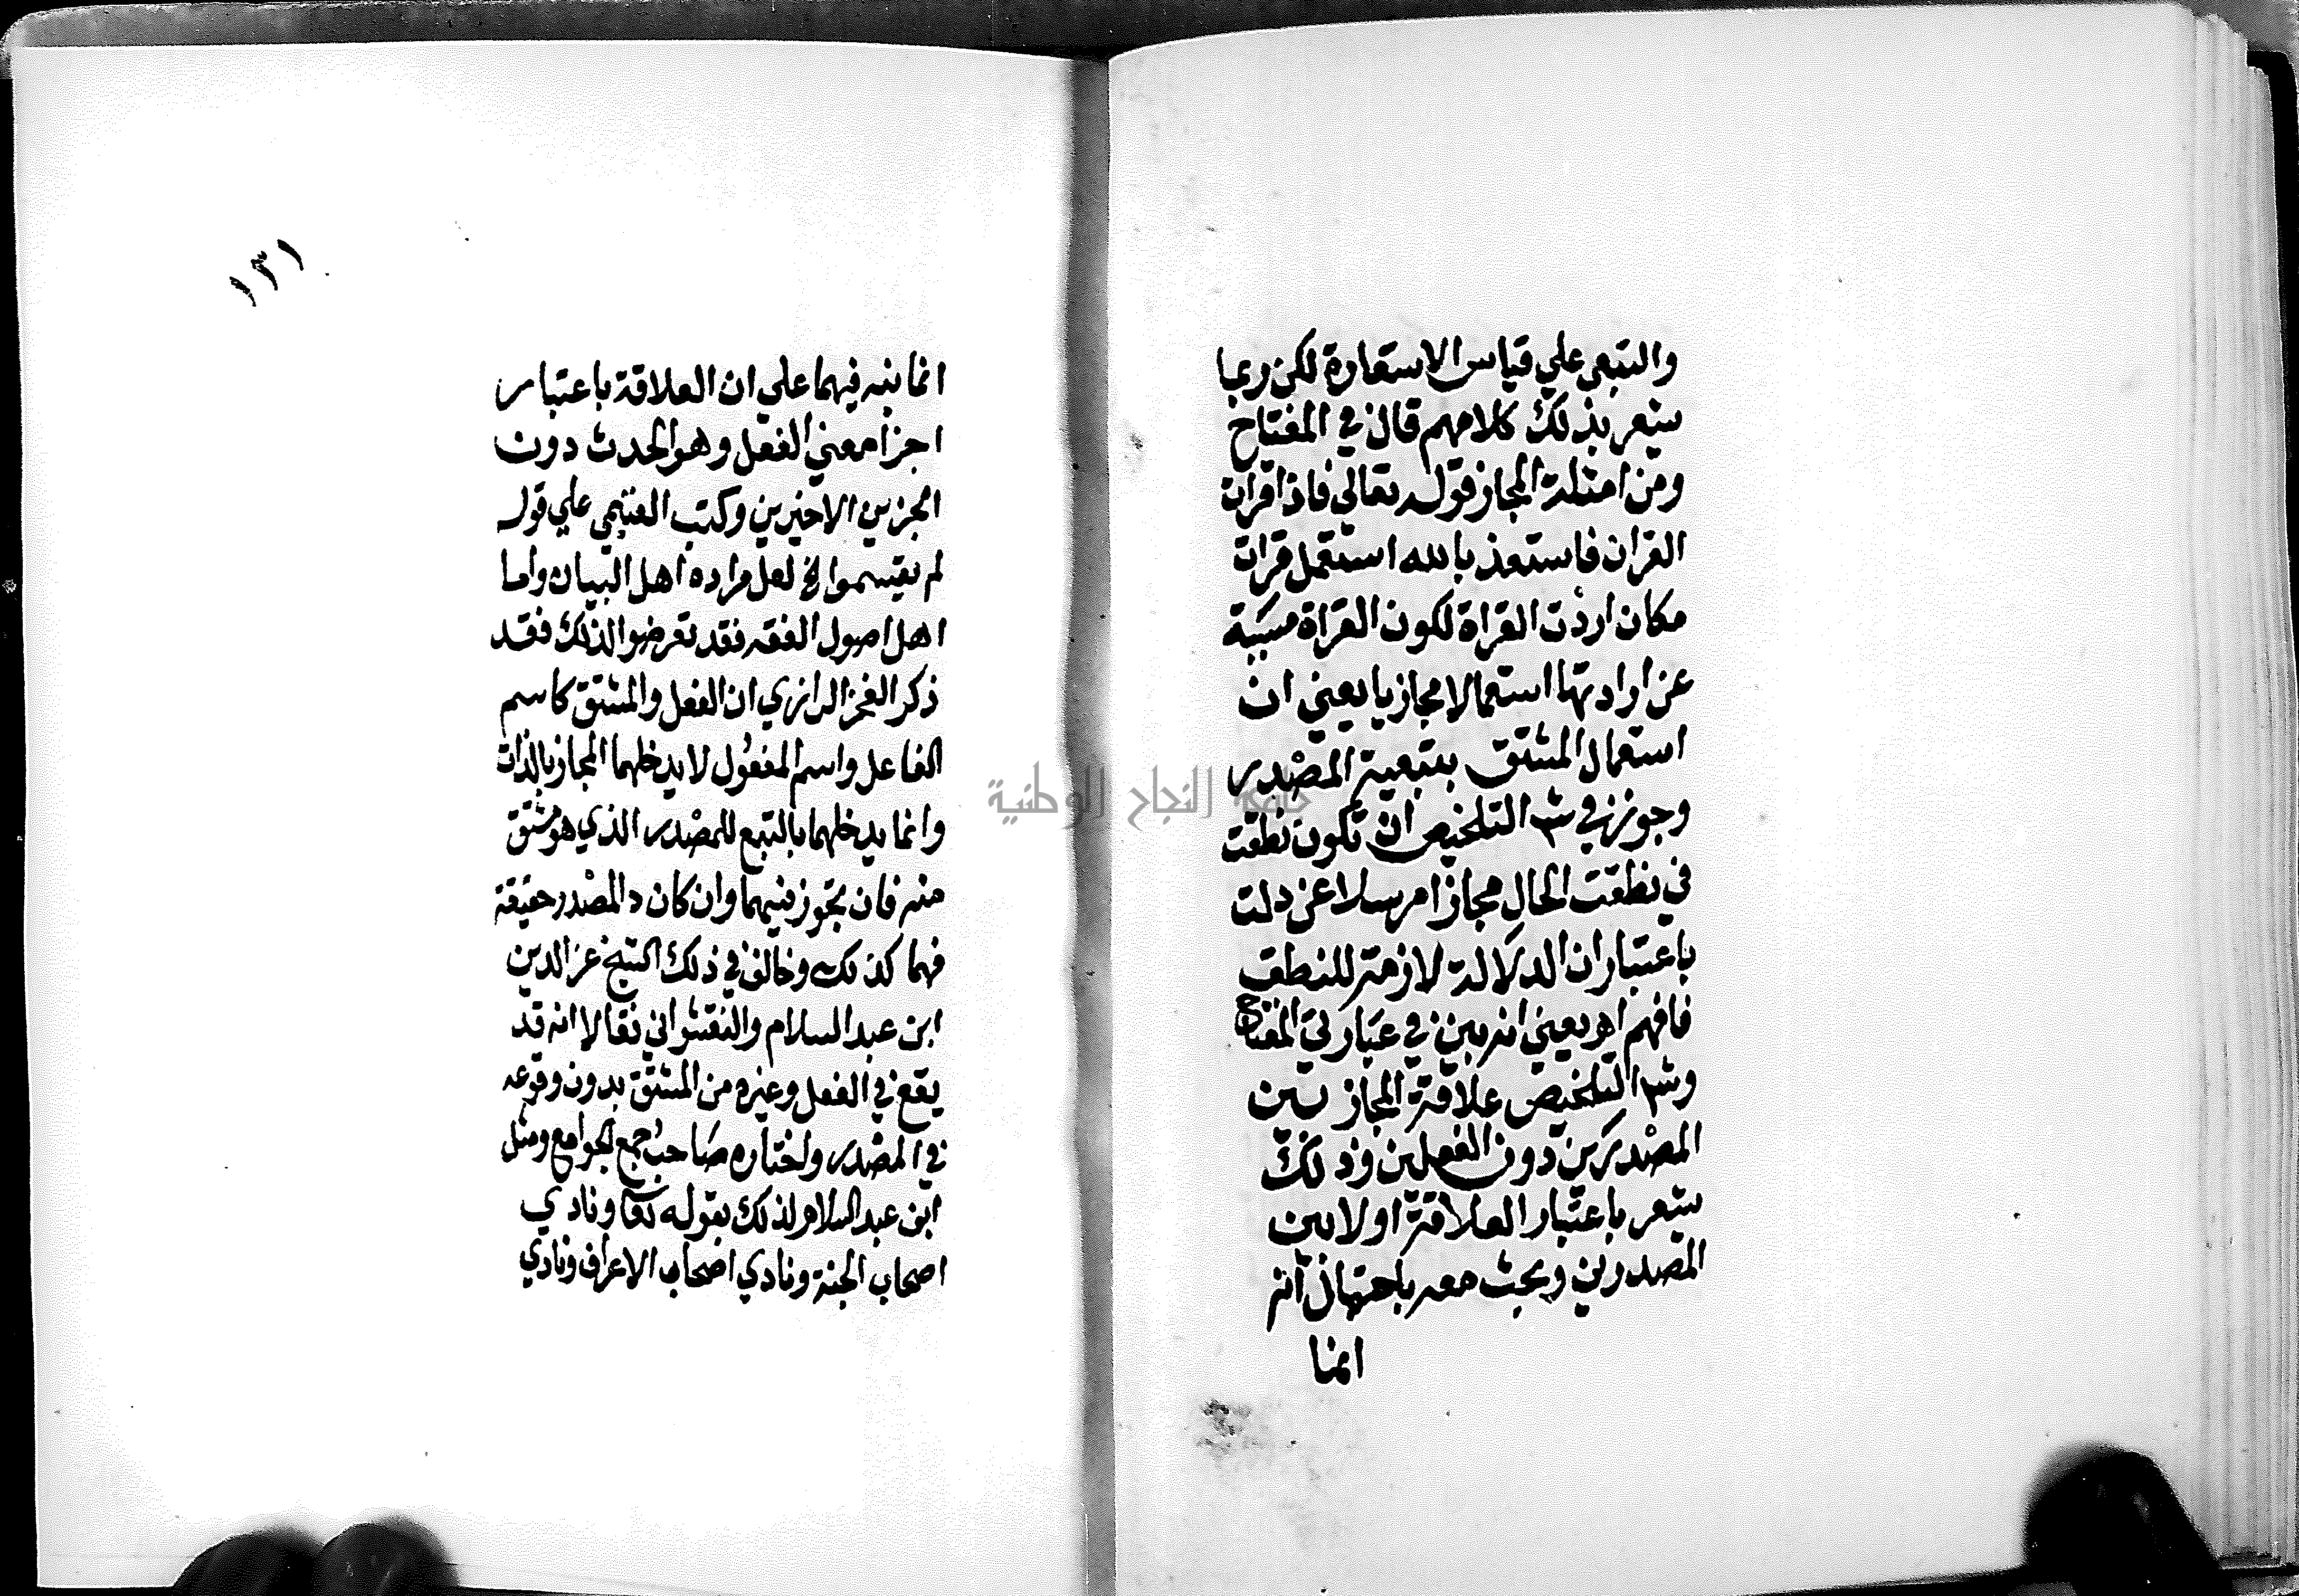 والتبعي علي قياس الاستعارة لكن ربما
يشعر بذلك كلامهم قال في المفتاح
ومن امثلة المجاز قوله تعالي فاذا قرات
القران فاستعذ بالله استعمل قرات
مكان اردت القراة لكون القراة مسببة
عن ارادتها استعمالا مجازيا يعني ان
استعمال المشتق بتبعية المصدر
وجوز في شر التلخيص ان تكون نطقت
في نطقت الحال مجازا مرسلا عن دلت
باعتبار ان الدلالة لازمة للنطق
فافهم اهو يعني انه بين في عبارتي المفتاح
وشر التلخيص علاقة المجاز بين
المصدرين دون الفعلين وذلك
يشعر باعتبار العلاقة اولا بين
المصدرين وبحث معه باحتمال انه
انما
١٣١
انما نبه فيهما علي ان العلاقة باعتبار
اجزا معني الفعل وهو الحدث دون
الجزين الاخيرين وكتب الغنيمي علي قوله
لم يقسموا الخ لعل مراده اهل البيان واما
اهل اصول الفقه فقد تعرضوا لذلك فقد
ذكر الفخر الرازي ان الفعل والمشتق كاسم
الفاعل واسم المفعول لا يدخلهما المجاز بالذات
وانما يدخلهما بالتبع للمصدر الذي هو مشتق
منه فان تجوز فيهما وان كان المصدر حقيقة
فهما كذلك وخالف في ذلك الشيخ عز الدين
ابن عبد السلام والنقشواني فقالا انه قد
يقع في الفعل وغيره من المشتق بدون وقوعه
في المصدر واختاره صاحب جمع الجوامع ومثل
ابن عبد السلام لذلك بقوله تعا ونادي
اصحاب الجنة ونادي اصحاب الاعراف ونادي
جامعة النجاح الوطنية